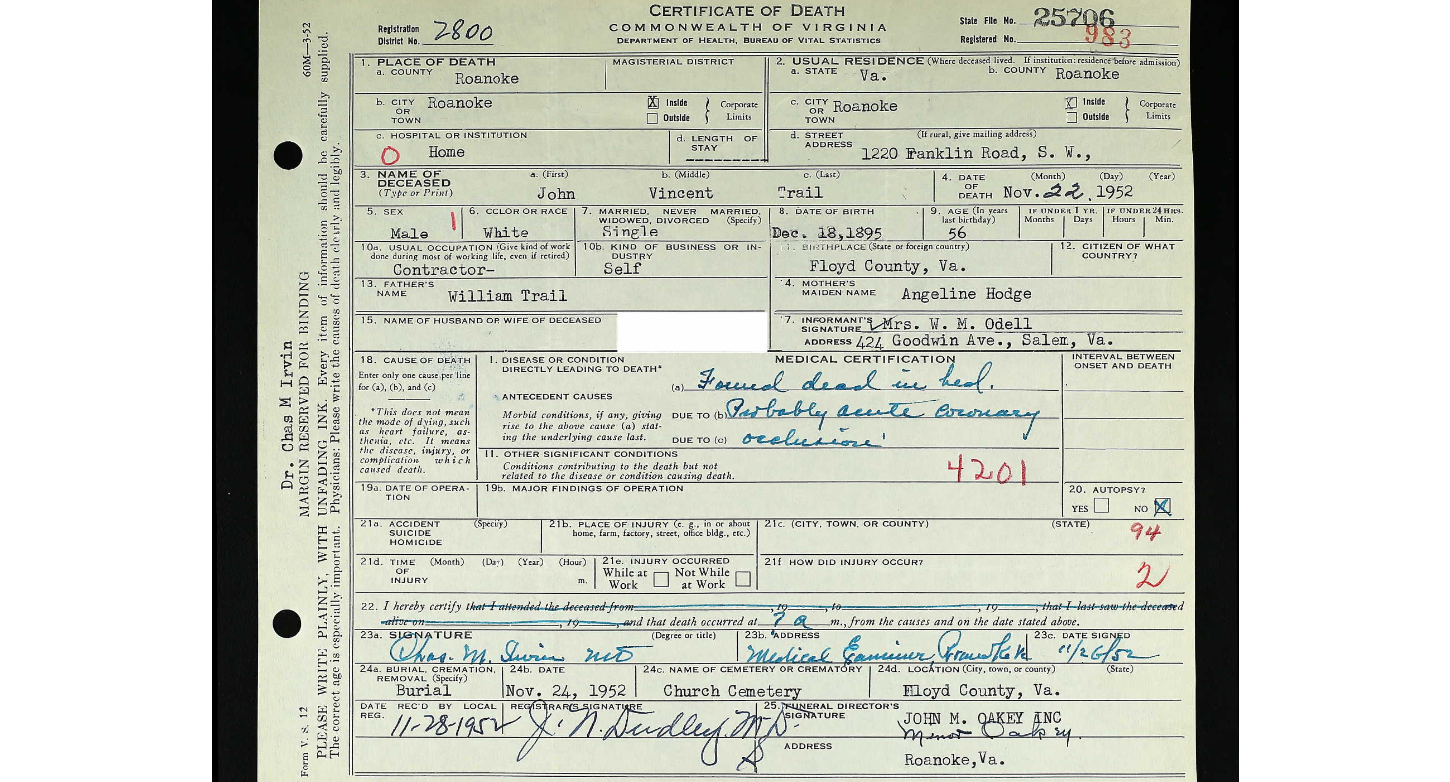 CERTIFICATE OF DEATH
COMMONWEALTH OF VIRGINIA
DEPARTMENT OF HEALTH, BUREAU OF VITAL STATISTICS
Registration District No. 2800
State File No. 25706
Registered No. 983
60M—3-52
1. PLACE OF DEATH
a. COUNTY Roanoke
MAGISTERIAL DISTRICT
2. USUAL RESIDENCE (Where deceased lived. If institution: residence before admission)
a. STATE Va.
b. COUNTY Roanoke
b. CITY OR TOWN Roanoke
X Inside Outside Corporate Limits
c. CITY OR TOWN Roanoke
X Inside Outside Corporate Limits
c. HOSPITAL OR INSTITUTION
0 Home
d. LENGTH OF STAY
d. STREET ADDRESS (If rural, give mailing address)
1220 Fanklin Road, S. W.,
3. NAME OF DECEASED (Type or Print)
a. (First) b. (Middle) c. (Last)
John Vincent Trail
4. DATE OF DEATH (Month) (Day) (Year)
Nov. 22, 1952
5. SEX
Male 1
6. COLOR OR RACE
White
7. MARRIED, NEVER MARRIED, WIDOWED, DIVORCED (Specify)
Single
8. DATE OF BIRTH
Dec. 18,1895
9. AGE (In years last birthday)
56
IF UNDER 1 YR. Months Days
IF UNDER 24 HRS. Hours Min.
10a. USUAL OCCUPATION (Give kind of work done during most of working life, even if retired)
Contractor-
10b. KIND OF BUSINESS OR INDUSTRY
Self
11. BIRTHPLACE (State or foreign country)
Floyd County, Va.
12. CITIZEN OF WHAT COUNTRY?
13. FATHER'S NAME William Trail
14. MOTHER'S MAIDEN NAME Angeline Hodge
15. NAME OF HUSBAND OR WIFE OF DECEASED
17. INFORMANT'S SIGNATURE Mrs. W. M. Odell
ADDRESS 424 Goodwin Ave., Salem, Va.
18. CAUSE OF DEATH
Enter only one cause per line for (a), (b), and (c)
*This does not mean the mode of dying, such as heart failure, asthenia, etc. It means the disease, injury, or complication which caused death.
MEDICAL CERTIFICATION
INTERVAL BETWEEN ONSET AND DEATH
I. DISEASE OR CONDITION DIRECTLY LEADING TO DEATH*
(a) Found dead in bed.
ANTECEDENT CAUSES
Morbid conditions, if any, giving rise to the above cause (a) stating the underlying cause last.
DUE TO (b) Probably acute coronary
DUE TO (c) occlusion
II. OTHER SIGNIFICANT CONDITIONS
Conditions contributing to the death but not related to the disease or condition causing death.
4201
19a. DATE OF OPERATION
19b. MAJOR FINDINGS OF OPERATION
20. AUTOPSY?
YES NO X
21a. ACCIDENT SUICIDE HOMICIDE (Specify)
21b. PLACE OF INJURY (e. g., in or about home, farm, factory, street, office bldg., etc.)
21c. (CITY, TOWN, OR COUNTY) (STATE)
94
21d. TIME OF INJURY (Month) (Day) (Year) (Hour) m.
21e. INJURY OCCURRED
While at Work Not While at Work
21f HOW DID INJURY OCCUR?
2
22. I hereby certify that I attended the deceased from , 19 , to , 19 , that I last saw the deceased
alive on , 19 , and that death occurred at ? a m., from the causes and on the date stated above.
23a. SIGNATURE (Degree or title)
Chas. M. Irvin MD
23b. ADDRESS
Medical Examiner
23c. DATE SIGNED
11/26/52
24a. BURIAL, CREMATION, REMOVAL (Specify)
Burial
24b. DATE
Nov. 24, 1952
24c. NAME OF CEMETERY OR CREMATORY
Church Cemetery
24d. LOCATION (City, town, or county) (State)
Floyd County, Va.
DATE REC'D BY LOCAL REG.
11-28-1952
REGISTRAR'S SIGNATURE
J. N. Dudley, M.D.
25. FUNERAL DIRECTOR'S SIGNATURE
JOHN M. OAKEY INC
Minor Oakey.
ADDRESS
Roanoke,Va.
Dr. Chas M Irvin
MARGIN RESERVED FOR BINDING
PLEASE WRITE PLAINLY, WITH UNFADING INK. Every item of information should be carefully supplied.
The correct age is especially important. Physicians: Please write the causes of death clearly and legibly.
Form V. S. 12